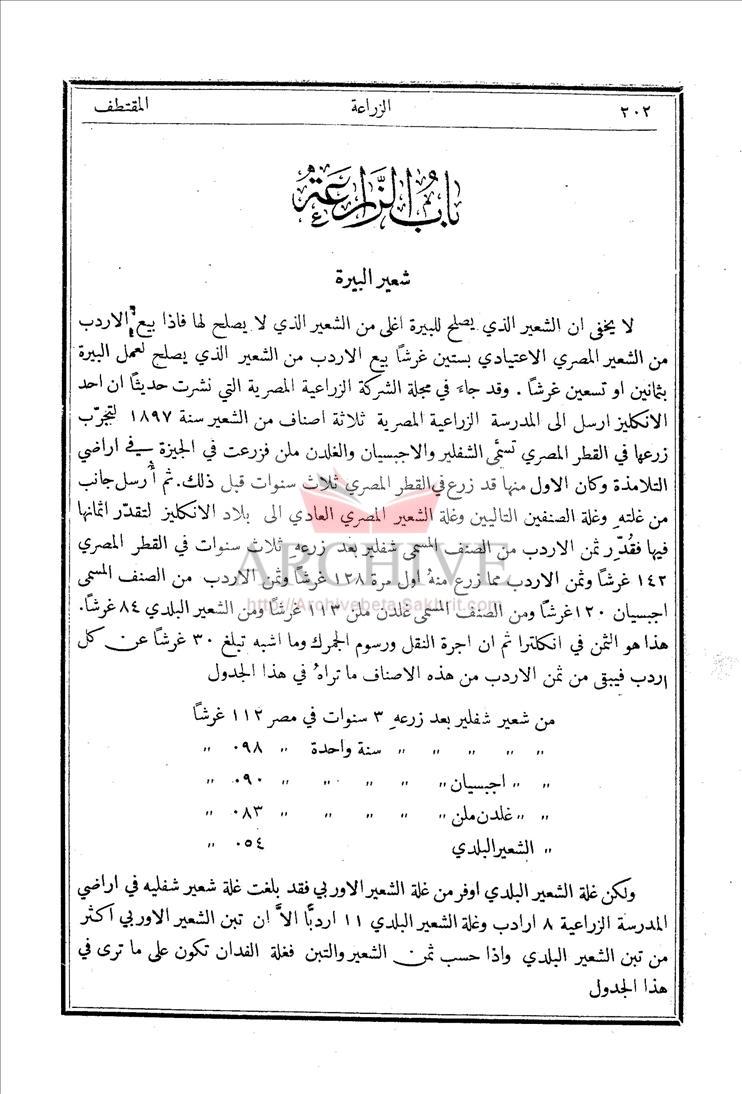 ٢٠٢ الزراعة المقتطف
باب الزراعة
شعير البيرة
لا يخفى ان الشعير الذي يصلح للبيرة اغلى من الشعير الذي لا يصلح لها فاذا بيع الاردب
من الشعير المصري الاعتيادي بستين غرشًا بيع الاردب من الشعير الذي يصلح لعمل البيرة
بثمانين او تسعين غرشًا . وقد جاءَ في مجلة الشركة الزراعية المصرية التي نشرت حديثًا ان احد
الانكليز ارسل الى المدرسة الزراعية المصرية ثلاثة اصناف من الشعير سنة ١٨٩٧ لتجرّب
زرعها في القطر المصري تسمَّى الشفلير والاجبسيان والغلدن ملن فزرعت في الجيزة في اراضي
التلامذة وكان الاول منها قد زرع في القطر المصري ثلاث سنوات قبل ذلك. ثم أُرسل جانب
من غلتهِ وغلة الصنفين التاليين وغلة الشعير المصري العادي الى بلاد الانكليز لتقدّر اثمانها
فيها فقُدِّر ثمن الاردب من الصنف المسمى شفلير بعد زرعهِ ثلاث سنوات في القطر المصري
١٤٢ غرشًا وثمن الاردب مما زرع منهُ اول مرة ١٢٨ غرشًا وثمن الاردب من الصنف المسمى
اجبسيان ١٢٠ غرشًا ومن الصنف المسمى غلدن ملن ١١٣ غرشًا ومن الشعير البلدي ٨٤ غرشًا.
هذا هو الثمن في انكلترا ثم ان اجرة النقل ورسوم الجمرك وما اشبه تبلغ ٣٠ غرشًا عن كل
اردب فيبقى من ثمن الاردب من هذه الاصناف ما تراهُ في هذا الجدول
من شعير شفلير بعد زرعهِ ٣ سنوات في مصر ١١٢ غرشًا
" " " " " سنة واحدة " ٠٩٨ "
" " اجبسيان " " " " " ٠٩٠ "
" " غلدن ملن " " " " " ٠٨٣ "
" الشعير البلدي ٠٥٤ "
ولكن غلة الشعير البلدي اوفر من غلة الشعير الاوربي فقد بلغت غلة شعير شفليه في اراضي
المدرسة الزراعية ٨ ارادب وغلة الشعير البلدي ١١ اردبًّا الاَّ ان تبن الشعير الاوربي اكثر
من تبن الشعير البلدي واذا حسب ثمن الشعير والتبن فغلة الفدان تكون على ما ترى في
هذا الجدول
ARCHIVE
http://Archivebeta.Sakhrit.com